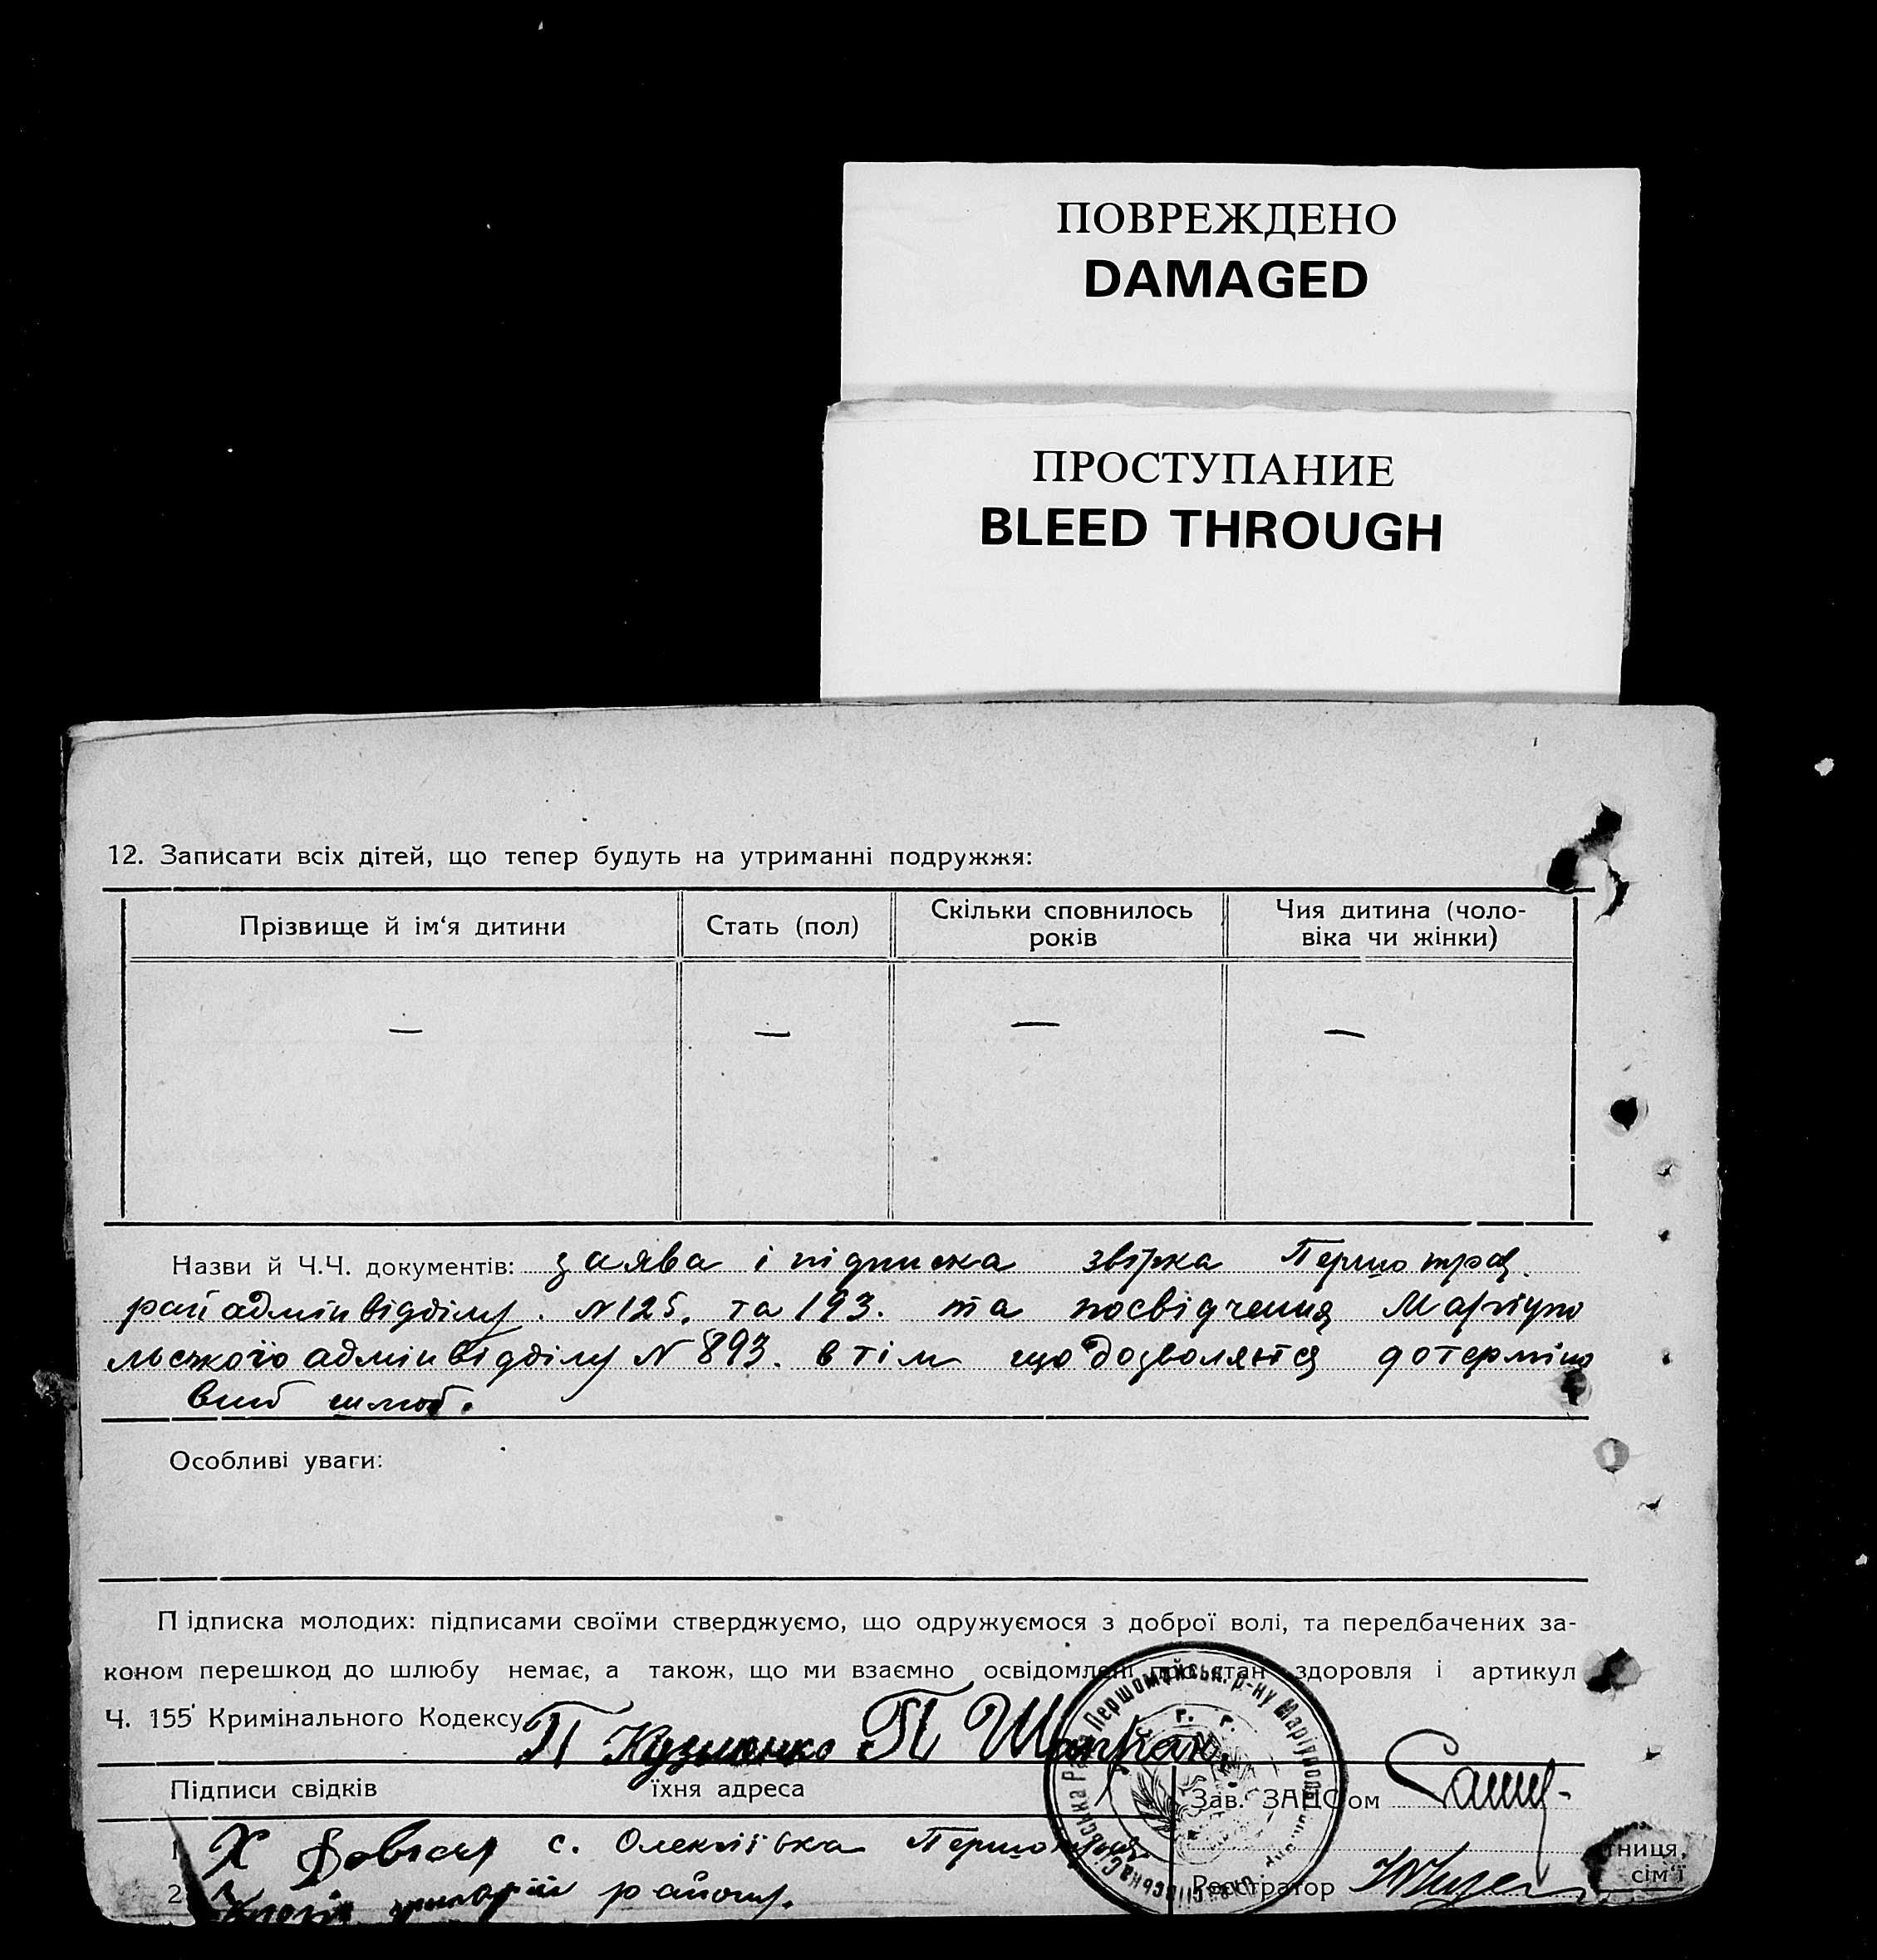 ПОВРЕЖДЕНО
DAMAGED
ПРОСТУПАНИЕ
BLEED THROUGH
12. Записати всіх дітей, що тепер будуть на утриманні подружжя:
Прізвище й ім‘я дитини
Стать (пол)
Скільки сповнилось
років
Чия дитина (чоло-
віка чи жінки)
— — — —
Назви й Ч.Ч. документів: заява і підписка звірка Першотрав.
райадмінвідділу. №125. та 193. та посвідчення Маріупо
льського адмінвідділу № 893. в тім що дозволяется дотерміно
вий шлюб.
Особливі уваги:
Підписка молодих: підписами своїми стверджуємо, що одружуємося з доброї волі, та передбачених за-
коном перешкод до шлюбу немає, а також, що ми взаємно освідомлені про стан здоровля і артикул
Ч. 155 Кримінального Кодексу
П Кузменко П Шапран
Підписи свідків їхня адреса
Зав. ЗАГС‘ом
1 Х с. Олексіївка
2 району.
Реєстратор
тниця,
сім‘ї
Рада Першомайськ. р-ну Маріупол.